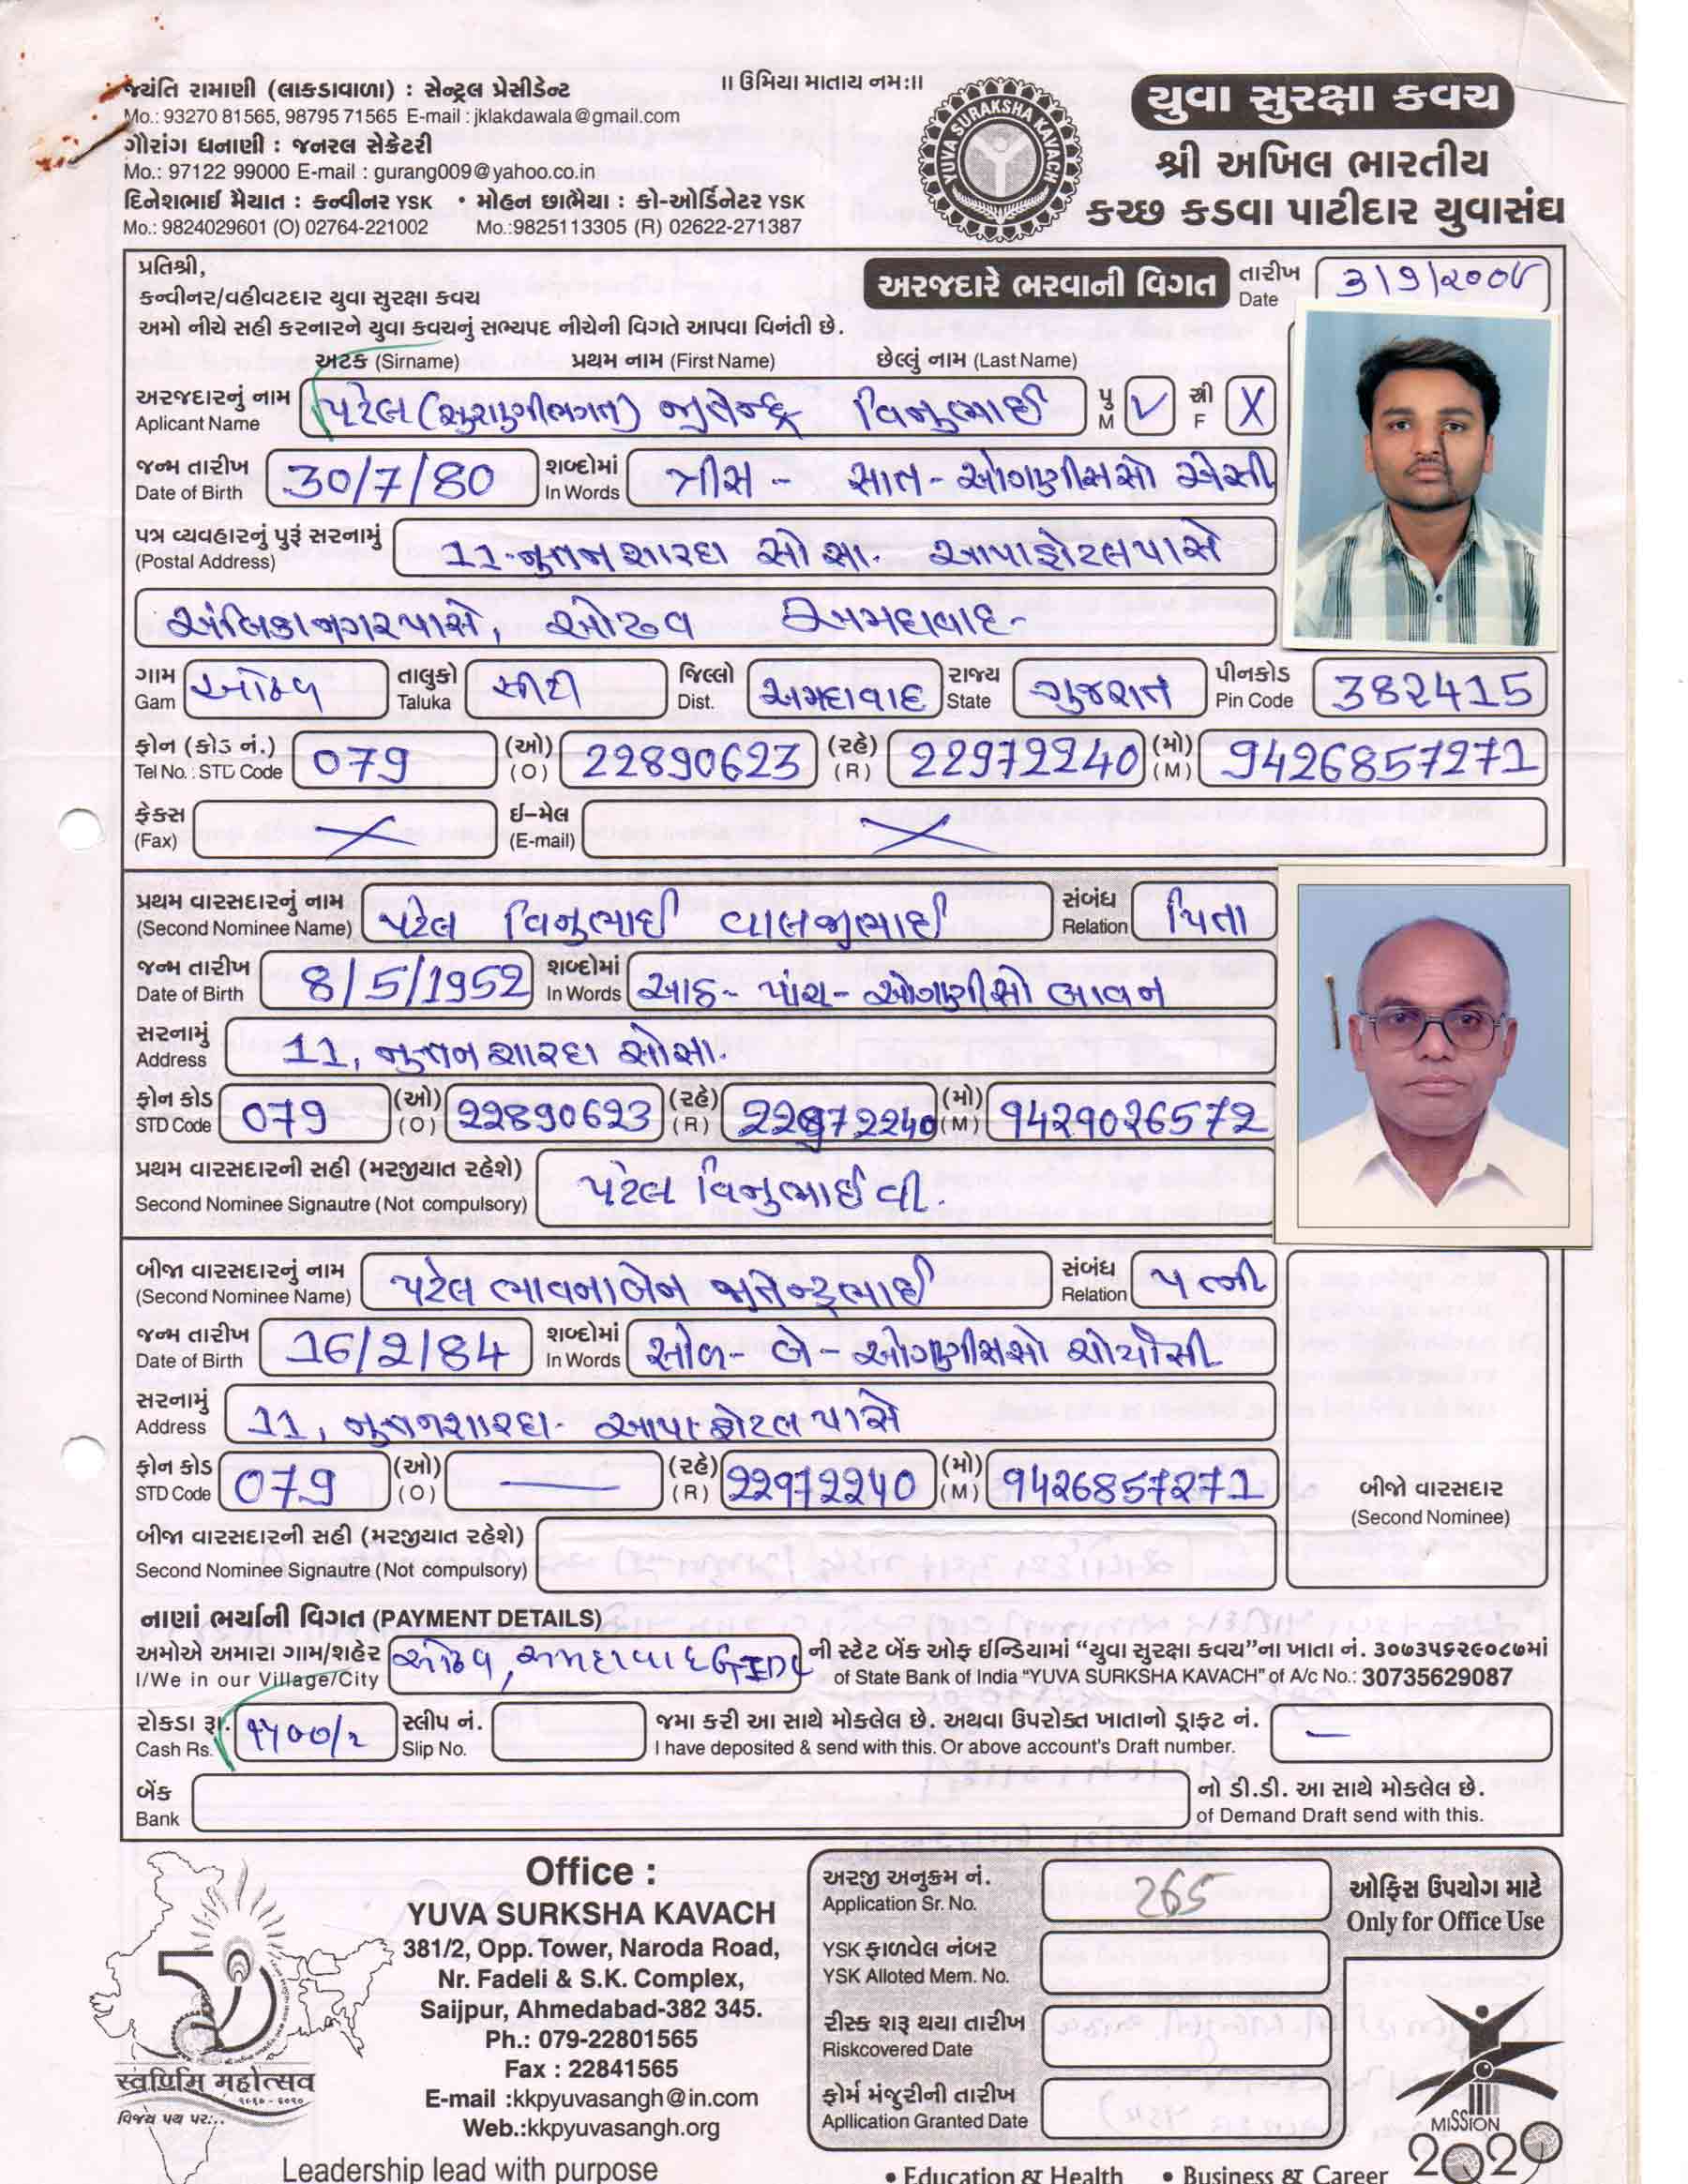 ॥ ઉમિયા માતાય નમ:॥
જ્યંતિ રામાણી (લાકડાવાળા) : સેન્ટ્રલ પ્રેસીડેન્ટ
Mo.: 93270 81565, 98795 71565 E-mail : jklakdawala@gmail.com
ગૌરાંગ ધનાણી : જનરલ સેક્રેટરી
Mo.: 97122 99000 E-mail : gurang009@yahoo.co.in
દિનેશભાઈ મૈયાત : કન્વીનર YSK • મોહન છાભૈયા : કો-ઓર્ડિનેટર YSK
Mo.: 9824029601 (O) 02764-221002 Mo.:9825113305 (R) 02622-271387
YUVA SURAKSHA KAVACH
યુવા સુરક્ષા કવચ
શ્રી અખિલ ભારતીય
કચ્છ કડવા પાટીદાર યુવાસંઘ
પ્રતિશ્રી,
કન્વીનર/વહીવટદાર યુવા સુરક્ષા કવચ
અમો નીચે સહી કરનારને યુવા કવચનું સભ્યપદ નીચેની વિગતે આપવા વિનંતી છે.
અરજદારે ભરવાની વિગત તારીખ Date 3/9/૨૦૦૯
અટક (Sirname) પ્રથમ નામ (First Name) છેલ્લું નામ (Last Name)
અરજદારનું નામ Aplicant Name પટેલ (સુરાણીભગત) જીતેન્દ્ર વિનુભાઈ પુ M ✓ સ્ત્રી F X
જન્મ તારીખ Date of Birth 30/7/80 શબ્દોમાં In Words ત્રીસ - સાત - ઓગણીસસો એસી
પત્ર વ્યવહારનું પુરૂં સરનામું (Postal Address) 11-નુતન શારદા સોસા. આપા હોટલ પાસે
અંબિકાનગર પાસે, ઓઢવ અમદાવાદ-
ગામ Gam ઓઢવ તાલુકો Taluka સીટી જિલ્લો Dist. અમદાવાદ રાજ્ય State ગુજરાત પીનકોડ Pin Code 382415
ફોન (કોડ નં.) Tel No. : STD Code 079 (ઓ) (O) 22890623 (રહે) (R) 22972240 (મો) (M) 9426857271
ફેક્સ (Fax) X ઈ-મેલ (E-mail) X
પ્રથમ વારસદારનું નામ (Second Nominee Name) પટેલ વિનુભાઈ વાલજીભાઈ સંબંધ Relation પિતા
જન્મ તારીખ Date of Birth 8/5/1952 શબ્દોમાં In Words આઠ - પાંચ - ઓગણીસો બાવન
સરનામું Address 11, નુતન શારદા સોસા.
ફોન કોડ STD Code 079 (ઓ) (O) 22890623 (રહે) (R) 22972240 (મો) (M) 9429026572
પ્રથમ વારસદારની સહી (મરજીયાત રહેશે) Second Nominee Signautre (Not compulsory) પટેલ વિનુભાઈ વી.
બીજા વારસદારનું નામ (Second Nominee Name) પટેલ ભાવનાબેન જીતેન્દ્રભાઈ સંબંધ Relation પત્ની
જન્મ તારીખ Date of Birth 16/2/84 શબ્દોમાં In Words સોળ - બે - ઓગણીસસો ચોર્યાસી
સરનામું Address 11, નુતન શારદા- આપા હોટલ પાસે
ફોન કોડ STD Code 079 (ઓ) (O) — (રહે) (R) 22972240 (મો) (M) 9426857271
બીજો વારસદાર
(Second Nominee)
બીજા વારસદારની સહી (મરજીયાત રહેશે)
Second Nominee Signautre (Not compulsory)
નાણાં ભર્યાની વિગત (PAYMENT DETAILS)
અમોએ અમારા ગામ/શહેર ઓઢવ, અમદાવાદ GIDC ની સ્ટેટ બેંક ઓફ ઈન્ડિયામાં “યુવા સુરક્ષા કવચ”ના ખાતા નં. ૩૦૭૩૫૬૨૯૦૮૭માં
I/We in our Village/City of State Bank of India "YUVA SURKSHA KAVACH" of A/c No.: 30735629087
રોકડા રૂા. ૧૫૦૦/૨ સ્લીપ નં. જમા કરી આ સાથે મોકલેલ છે. અથવા ઉપરોક્ત ખાતાનો ડ્રાફ્ટ નં. —
Cash Rs. Slip No. I have deposited & send with this. Or above account's Draft number.
બેંક નો ડી.ડી. આ સાથે મોકલેલ છે.
Bank of Demand Draft send with this.
Office :
YUVA SURKSHA KAVACH
381/2, Opp. Tower, Naroda Road,
Nr. Fadeli & S.K. Complex,
Saijpur, Ahmedabad-382 345.
Ph.: 079-22801565
Fax : 22841565
E-mail :kkpyuvasangh@in.com
Web.:kkpyuvasangh.org
50
સ્વર્ણિમ મહોત્સવ
વિજય પથ પર...
અરજી અનુક્રમ નં. Application Sr. No. 265
YSK ફાળવેલ નંબર YSK Alloted Mem. No.
રીસ્ક શરૂ થયા તારીખ Riskcovered Date
ફોર્મ મંજુરીની તારીખ Apllication Granted Date
ઓફિસ ઉપયોગ માટે
Only for Office Use
MISSION
2020
Leadership lead with purpose
• Education & Health • Business & Career